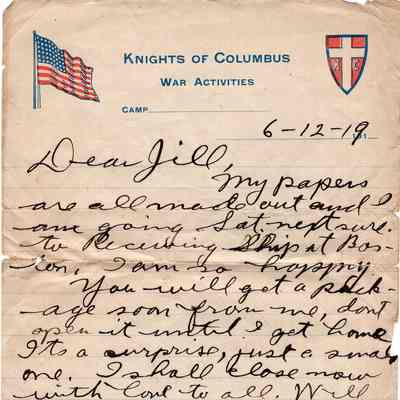 KNIGHTS OF COLUMBUS
WAR ACTIVITIES
CAMP
6-12-19 191
Dear Jill,
My papers
are all made out and I
am going Sat. next sure.
to Receiving Ship at Bos-
ton, I am so happy
You will get a pack-
age soon from me, dont
open it until I get home
Its a surprise, just a small
one. I shall close now
with love to all. Will